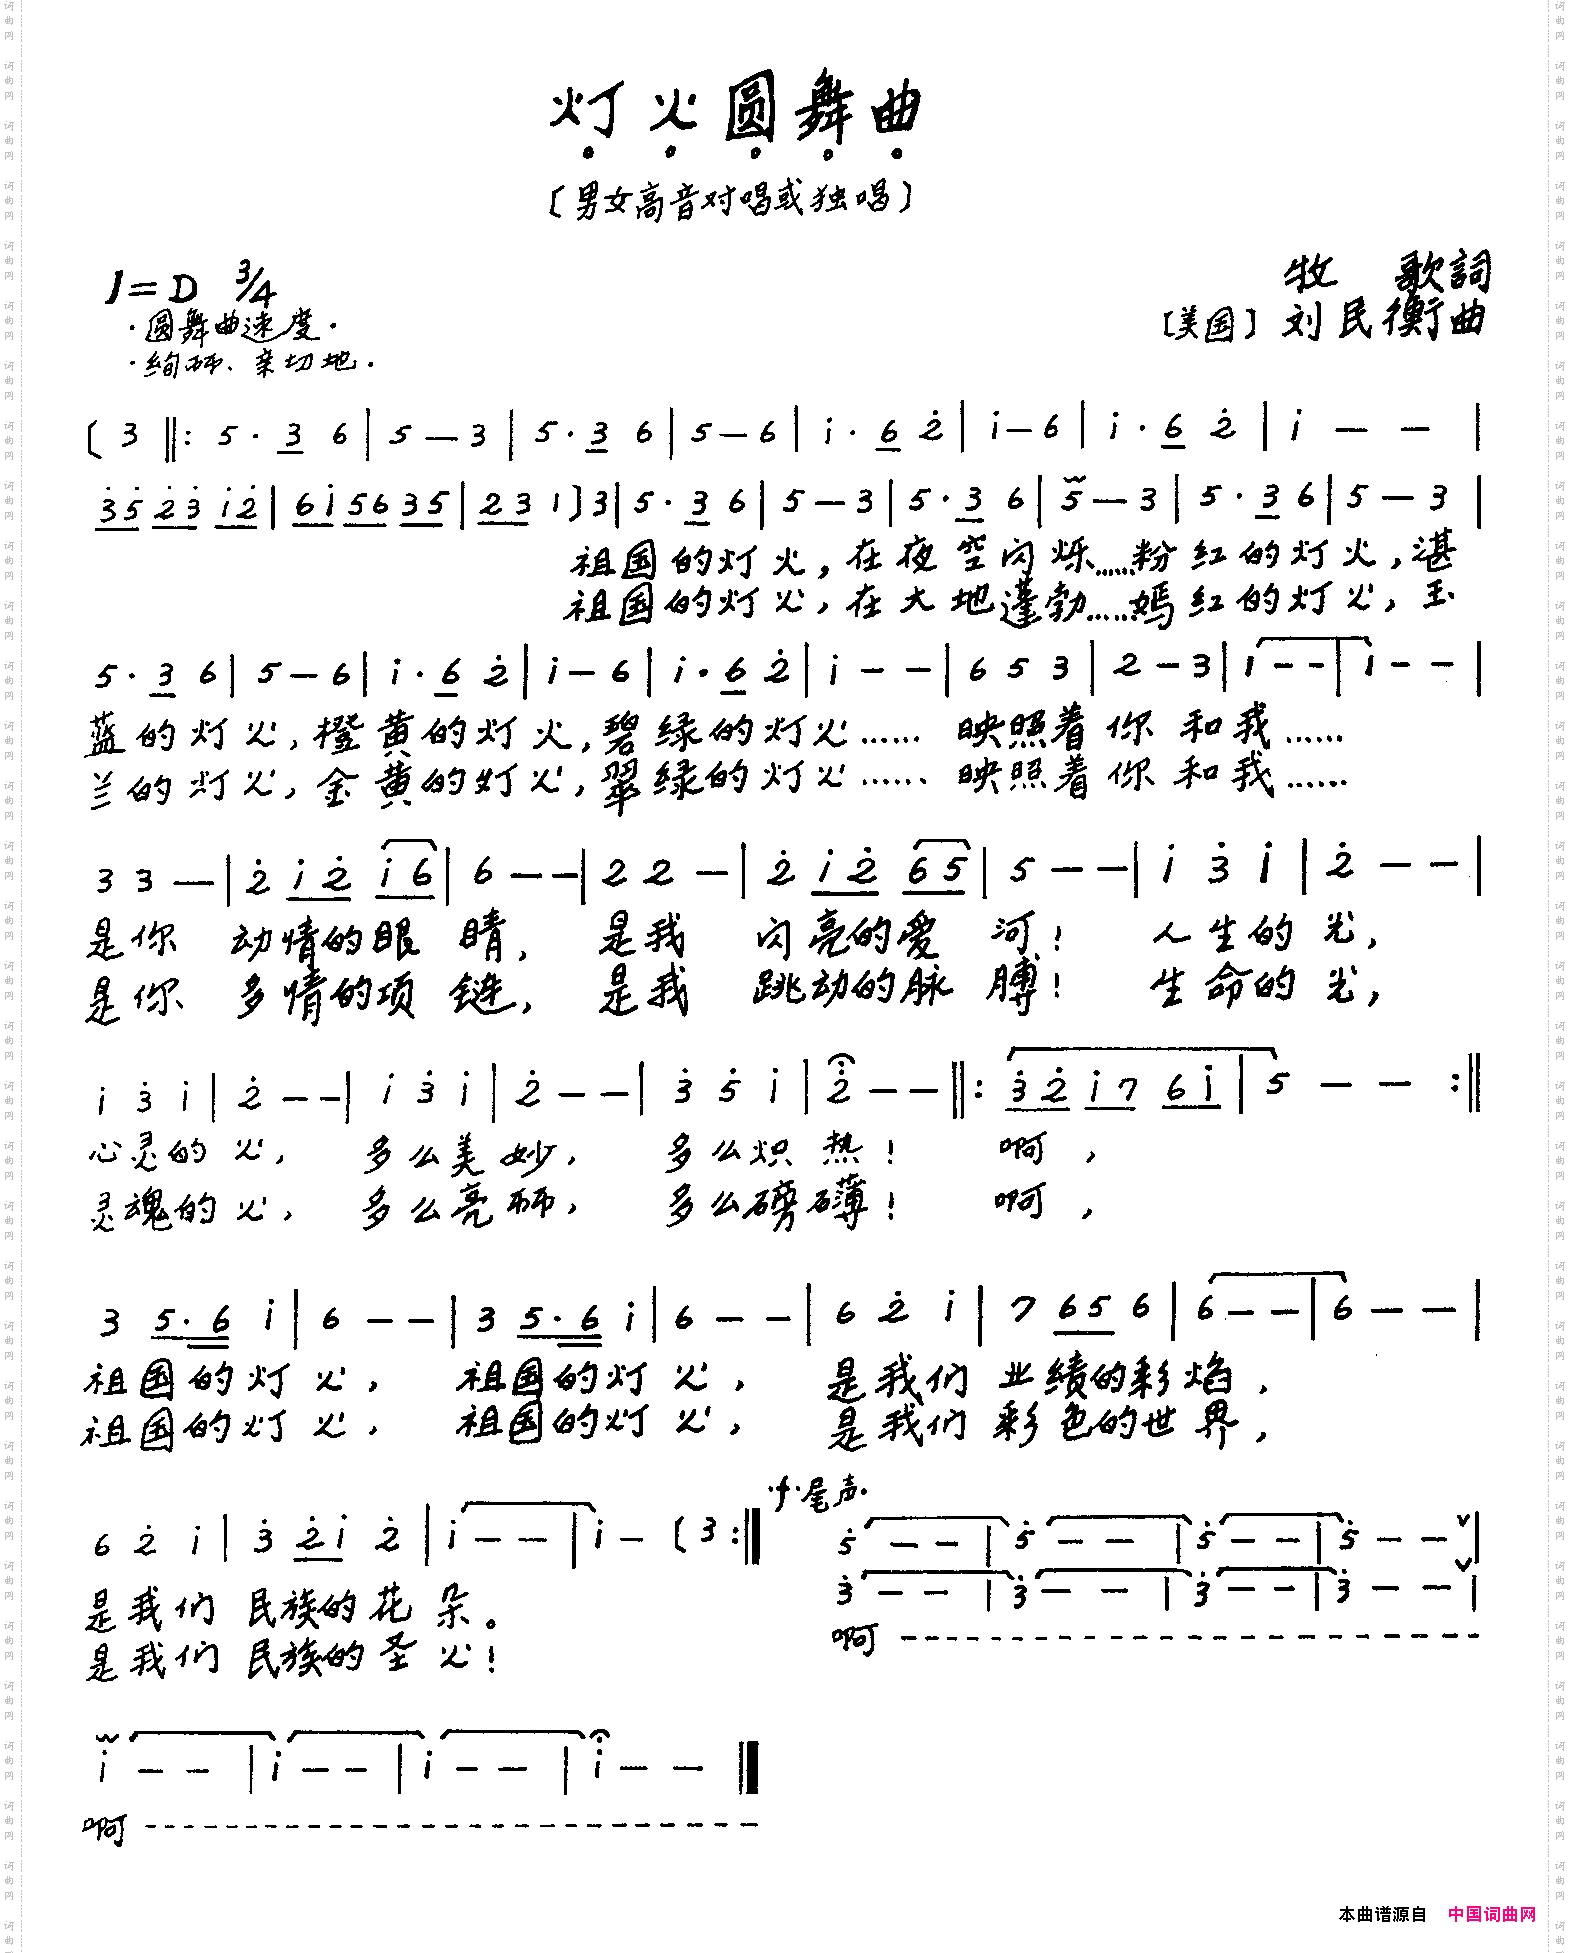 灯火圆舞曲
〔男女高音对唱或独唱〕
1=D 3/4
·圆舞曲速度·
·绚丽、亲切地·
牧 歌詞
〔美国〕刘民衡曲
〔 3 ‖: 5 · 3 6 | 5 — 3 | 5 · 3 6 | 5 — 6 | i · 6 2̇ | i — 6 | i · 6 2̇ | i — — |
3̇5̇ 2̇3̇ i2̇ | 6i 56 35 | 23 1 〕3 | 5 · 3 6 | 5 — 3 | 5 · 3 6 | 5 — 3 | 5 · 3 6 | 5 — 3 |
祖国的灯火,在夜空闪烁……粉红的灯火,湛
祖国的灯火,在大地蓬勃……嫣红的灯火,玉
5 · 3 6 | 5 — 6 | i · 6 2̇ | i — 6 | i · 6 2̇ | i — — | 6 5 3 | 2 — 3 | 1 — — | 1 — — |
蓝的灯火,橙黄的灯火,碧绿的灯火…… 映照着你 和我……
兰的灯火,金黄的灯火,翠绿的灯火…… 映照着你 和我……
3 3 — | 2̇ i2̇ i6 | 6 — — | 2 2 — | 2̇ i2̇ 65 | 5 — — | i 3̇ i | 2̇ — — |
是你 动情的眼 睛, 是我 闪亮的爱 河! 人生的光,
是你 多情的项 链, 是我 跳动的脉 膊! 生命的光,
i 3̇ i | 2̇ — — | i 3̇ i | 2̇ — — | 3̇ 5̇ i | 2̇ — — ‖: 3̇2̇ i7 6i | 5 — — :‖
心灵的火, 多么美妙, 多么炽热! 啊,
灵魂的火, 多么亮丽, 多么磅礴! 啊,
3 5·6 i | 6 — — | 3 5·6 i | 6 — — | 6 2̇ i | 7 65 6 | 6 — — | 6 — — |
祖国的灯火, 祖国的灯火, 是我们 业绩的彩焰,
祖国的灯火, 祖国的灯火, 是我们 彩色的世界,
6 2̇ i | 3̇ 2̇i 2̇ | i — — | i — 〔 3 :‖
是我们 民族的花 朵。
是我们 民族的圣 火!
·f·尾声·
5̇ — — | 5̇ — — | 5̇ — — | 5̇ — — |
3̇ — — | 3̇ — — | 3̇ — — | 3̇ — — |
啊
i — — | i — — | i — — | i — — ‖
啊
本曲谱源自 中国词曲网